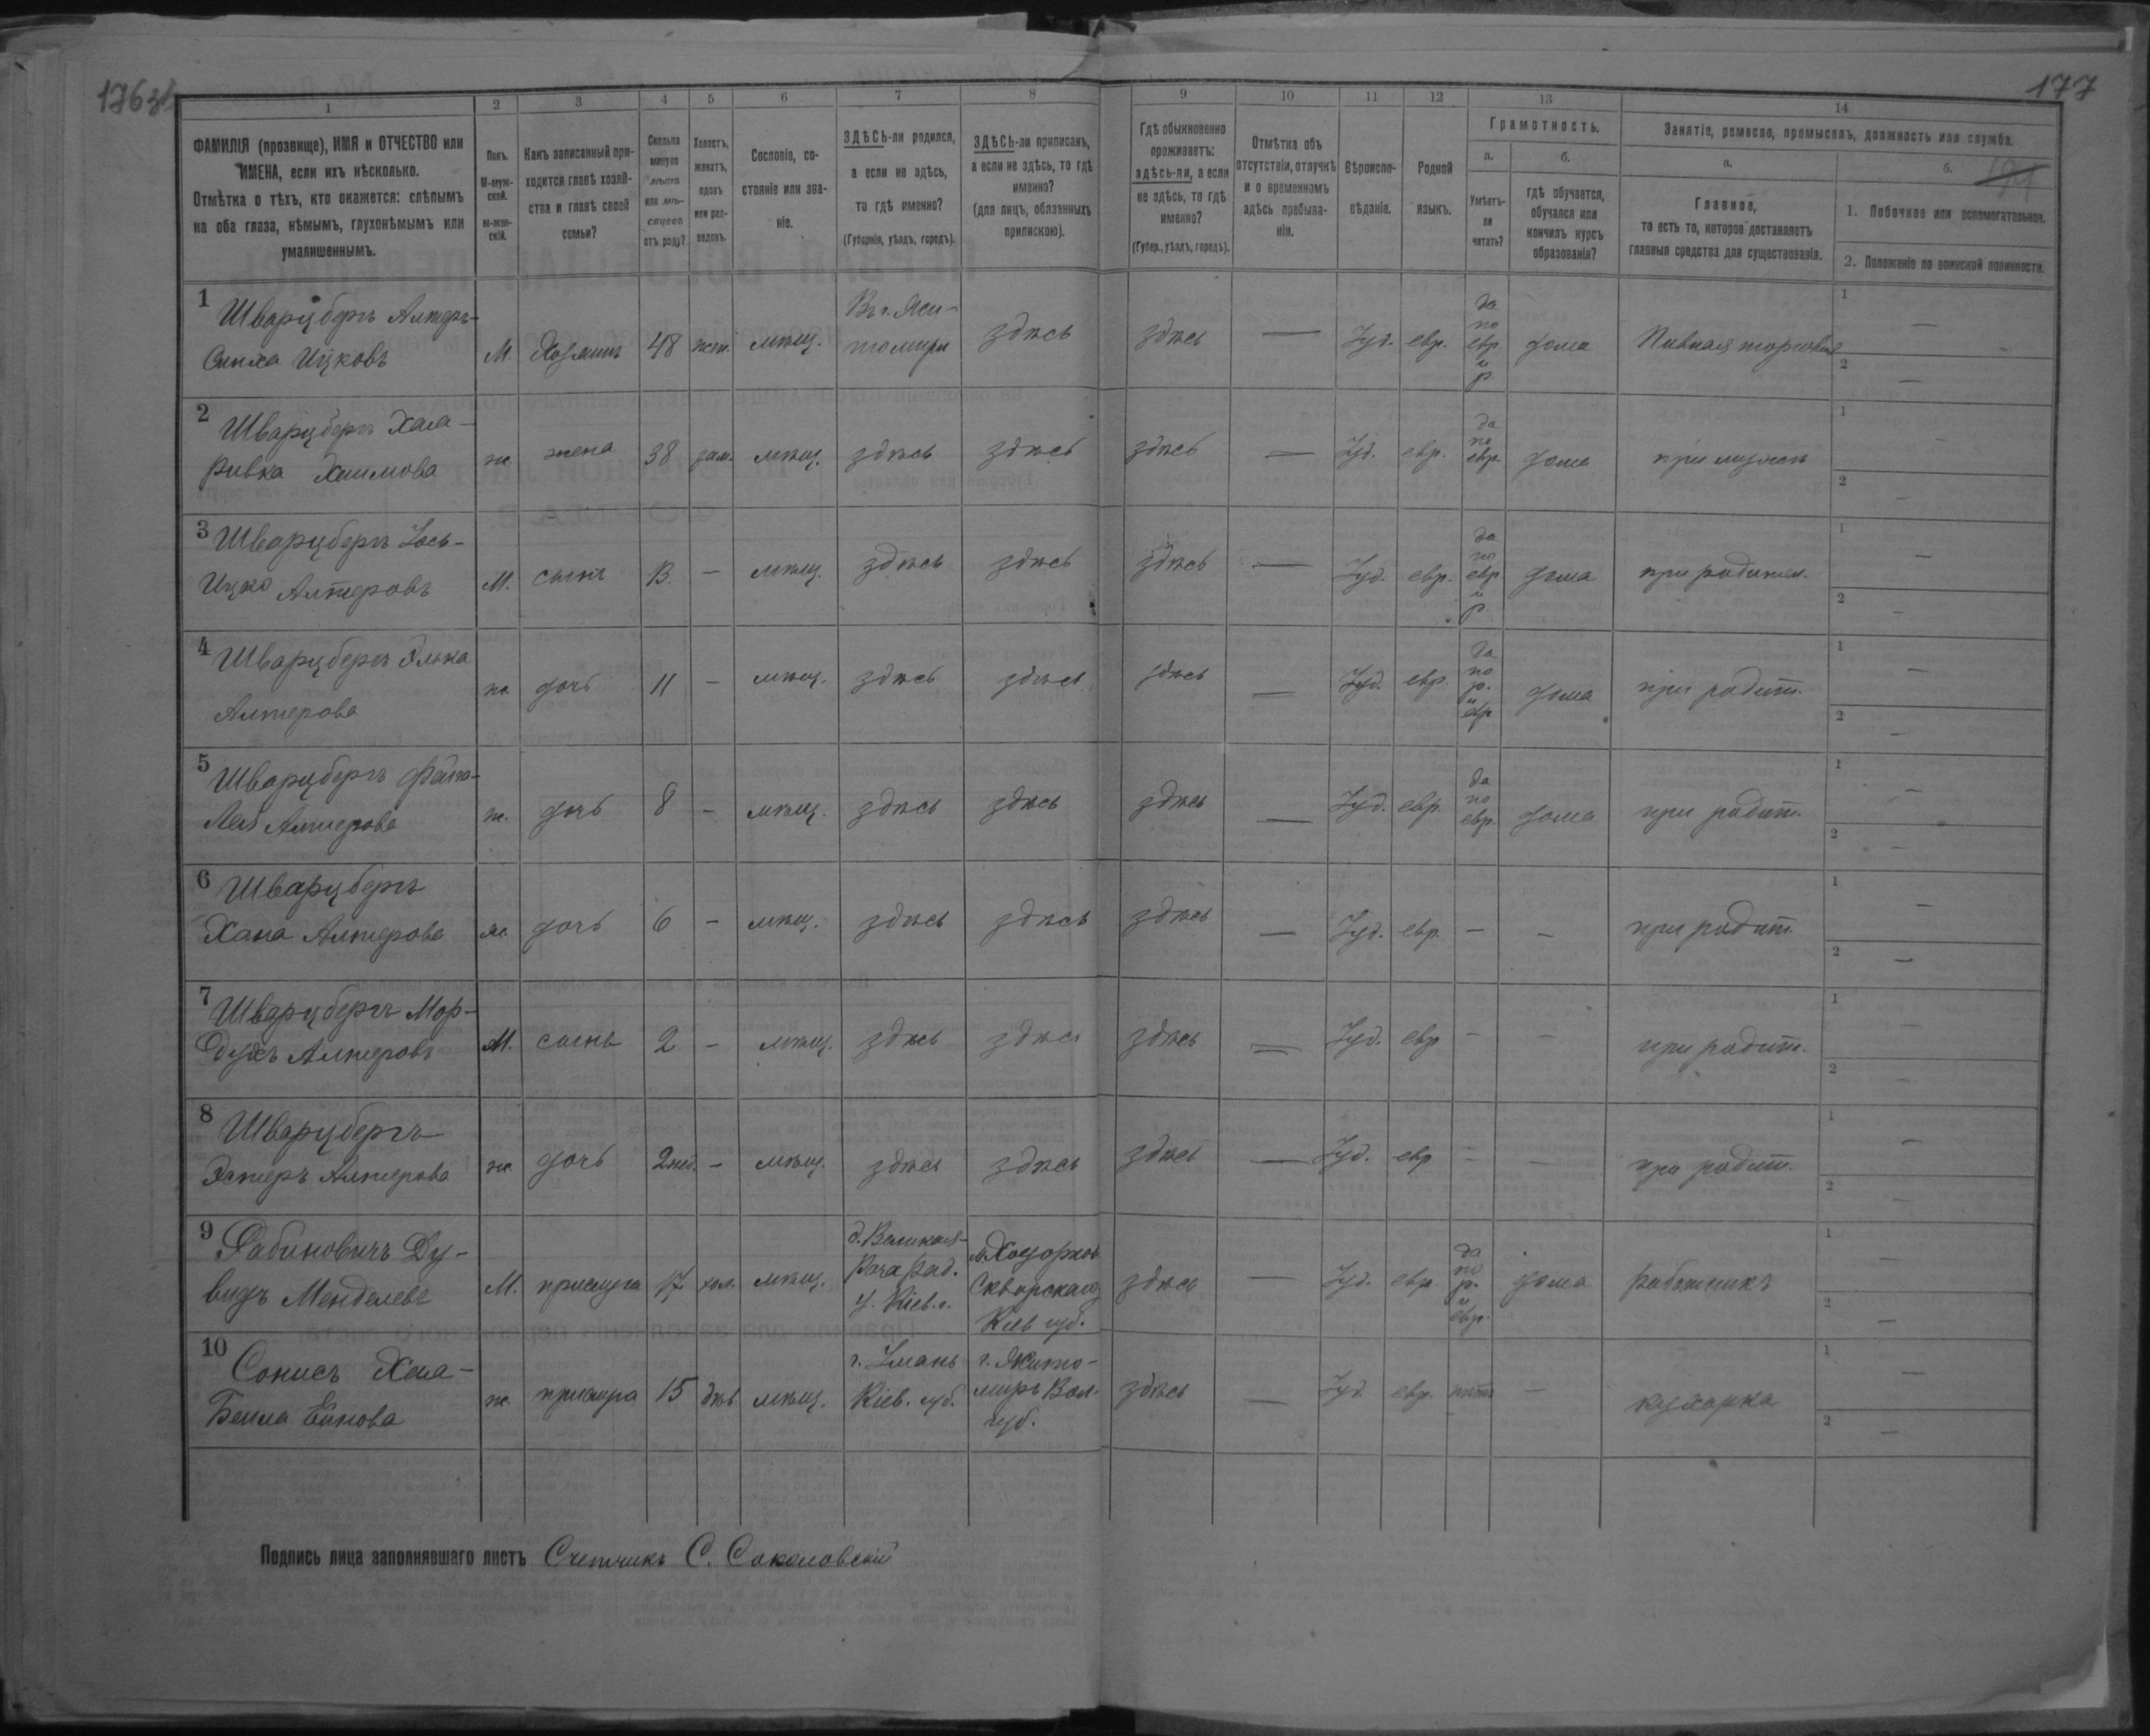 177
1 2 3 4 5 6 7 8 9 10 11 12 13 14
ФАМИЛІЯ (прозвище), ИМЯ и ОТЧЕСТВО или
ИМЕНА, если ихъ нѣсколько.
Отмѣтка о тѣхъ, кто окажется: слѣпымъ
на оба глаза, нѣмымъ, глухонѣмымъ или
умалишеннымъ.
Полъ.
М-муж-
ской.
ж-жен-
скій.
Какъ записанный при-
ходится главѣ хозяй-
ства и главѣ своей
семьи?
Сколько
минуло
лѣтъ
или мѣ-
сяцевъ
отъ роду?
Холостъ,
женатъ,
вдовъ
или раз-
веденъ.
Сословіе, со-
стояніе или зва-
ніе.
ЗДѢСЬ-ли родился,
а если не здѣсь,
то гдѣ именно?
(Губернія, уѣздъ, городъ).
ЗДѢСЬ-ли приписанъ,
а если не здѣсь, то гдѣ
именно?
(для лицъ, обязанныхъ
припискою).
Гдѣ обыкновенно
проживаетъ:
здѣсь-ли, а если
не здѣсь, то гдѣ
именно?
(Губер., уѣздъ, городъ).
Отмѣтка объ
отсутствіи, отлучкѣ
и о временномъ
здѣсь пребыва-
ніи.
Вѣроиспо-
вѣданіе.
Родной
языкъ.
Грамотность.
а.
Умѣетъ-
ли
читать?
б.
гдѣ обучается,
обучался или
кончилъ курсъ
образованія?
Занятіе, ремесло, промыселъ, должность или служба.
а.
Главное,
то есть то, которое доставляетъ
главныя средства для существованія.
б.
1. Побочное или вспомогательное.
2. Положеніе по воинской повинности.
1 Шварцбергъ Алтеръ-
Симха Ицковъ М. Хозяинъ 48 жен. мѣщ. Въ г. Жи-
томирѣ здѣсь здѣсь — Іуд. евр. да
по
евр.
и
р. дома Пивная торговля 1 — 2 —
2 Шварцбергъ Хая-
Ривка Хаимова ж жена 38 зам. мѣщ. здѣсь здѣсь здѣсь — Іуд. евр. да
по
евр. дома при мужѣ 1 — 2 —
3 Шварцбергъ Іось-
Ицко Алтеровъ М. сынъ 13. — мѣщ. здѣсь здѣсь здѣсь — Іуд. евр. да
по
евр
и
р. дома при родител. 1 — 2 —
4 Шварцбергъ Элька
Алтерова ж. дочь 11 — мѣщ. здѣсь здѣсь здѣсь — Іуд. евр. да
по
р.
и
евр дома при родит. 1 — 2 —
5 Шварцбергъ Фейга-
Лея Алтерова ж. дочь 8 — мѣщ. здѣсь здѣсь здѣсь — Іуд. евр. да
по
евр. дома при родит. 1 — 2 —
6 Шварцбергъ
Хана Алтерова ж. дочь 6 — мѣщ. здѣсь здѣсь здѣсь — Іуд. евр. — — при родит. 1 — 2 —
7 Шварцбергъ Мор-
духъ Алтеровъ М. сынъ 2 — мѣщ. здѣсь здѣсь здѣсь — Іуд. евр — — при родит. 1 — 2 —
8 Шварцбергъ
Эстеръ Алтерова ж. дочь 2 нед. — мѣщ. здѣсь здѣсь здѣсь — Іуд. евр — — при родит. 1 — 2 —
9 Рабиновичъ Ду-
видъ Менделевъ М. прислуга 17 хол. мѣщ. д. Великая-
Рача Рад.
у. Кіев. г. м. Ходорковъ
Сквирскаго
Кіев губ. здѣсь — Іуд. евр. да
по
р.
и
евр. дома работникъ 1 — 2 —
10 Сонисъ Хая-
Бейла Ейнова ж. прислуга 15 дѣв. мѣщ. г. Умань
Кіев. губ. г. Жито-
миръ Вол.
губ. здѣсь — Іуд. евр. нѣт — кухарка 1 — 2 —
Подпись лица заполнявшаго листъ Счетчикъ С. Соколовскій